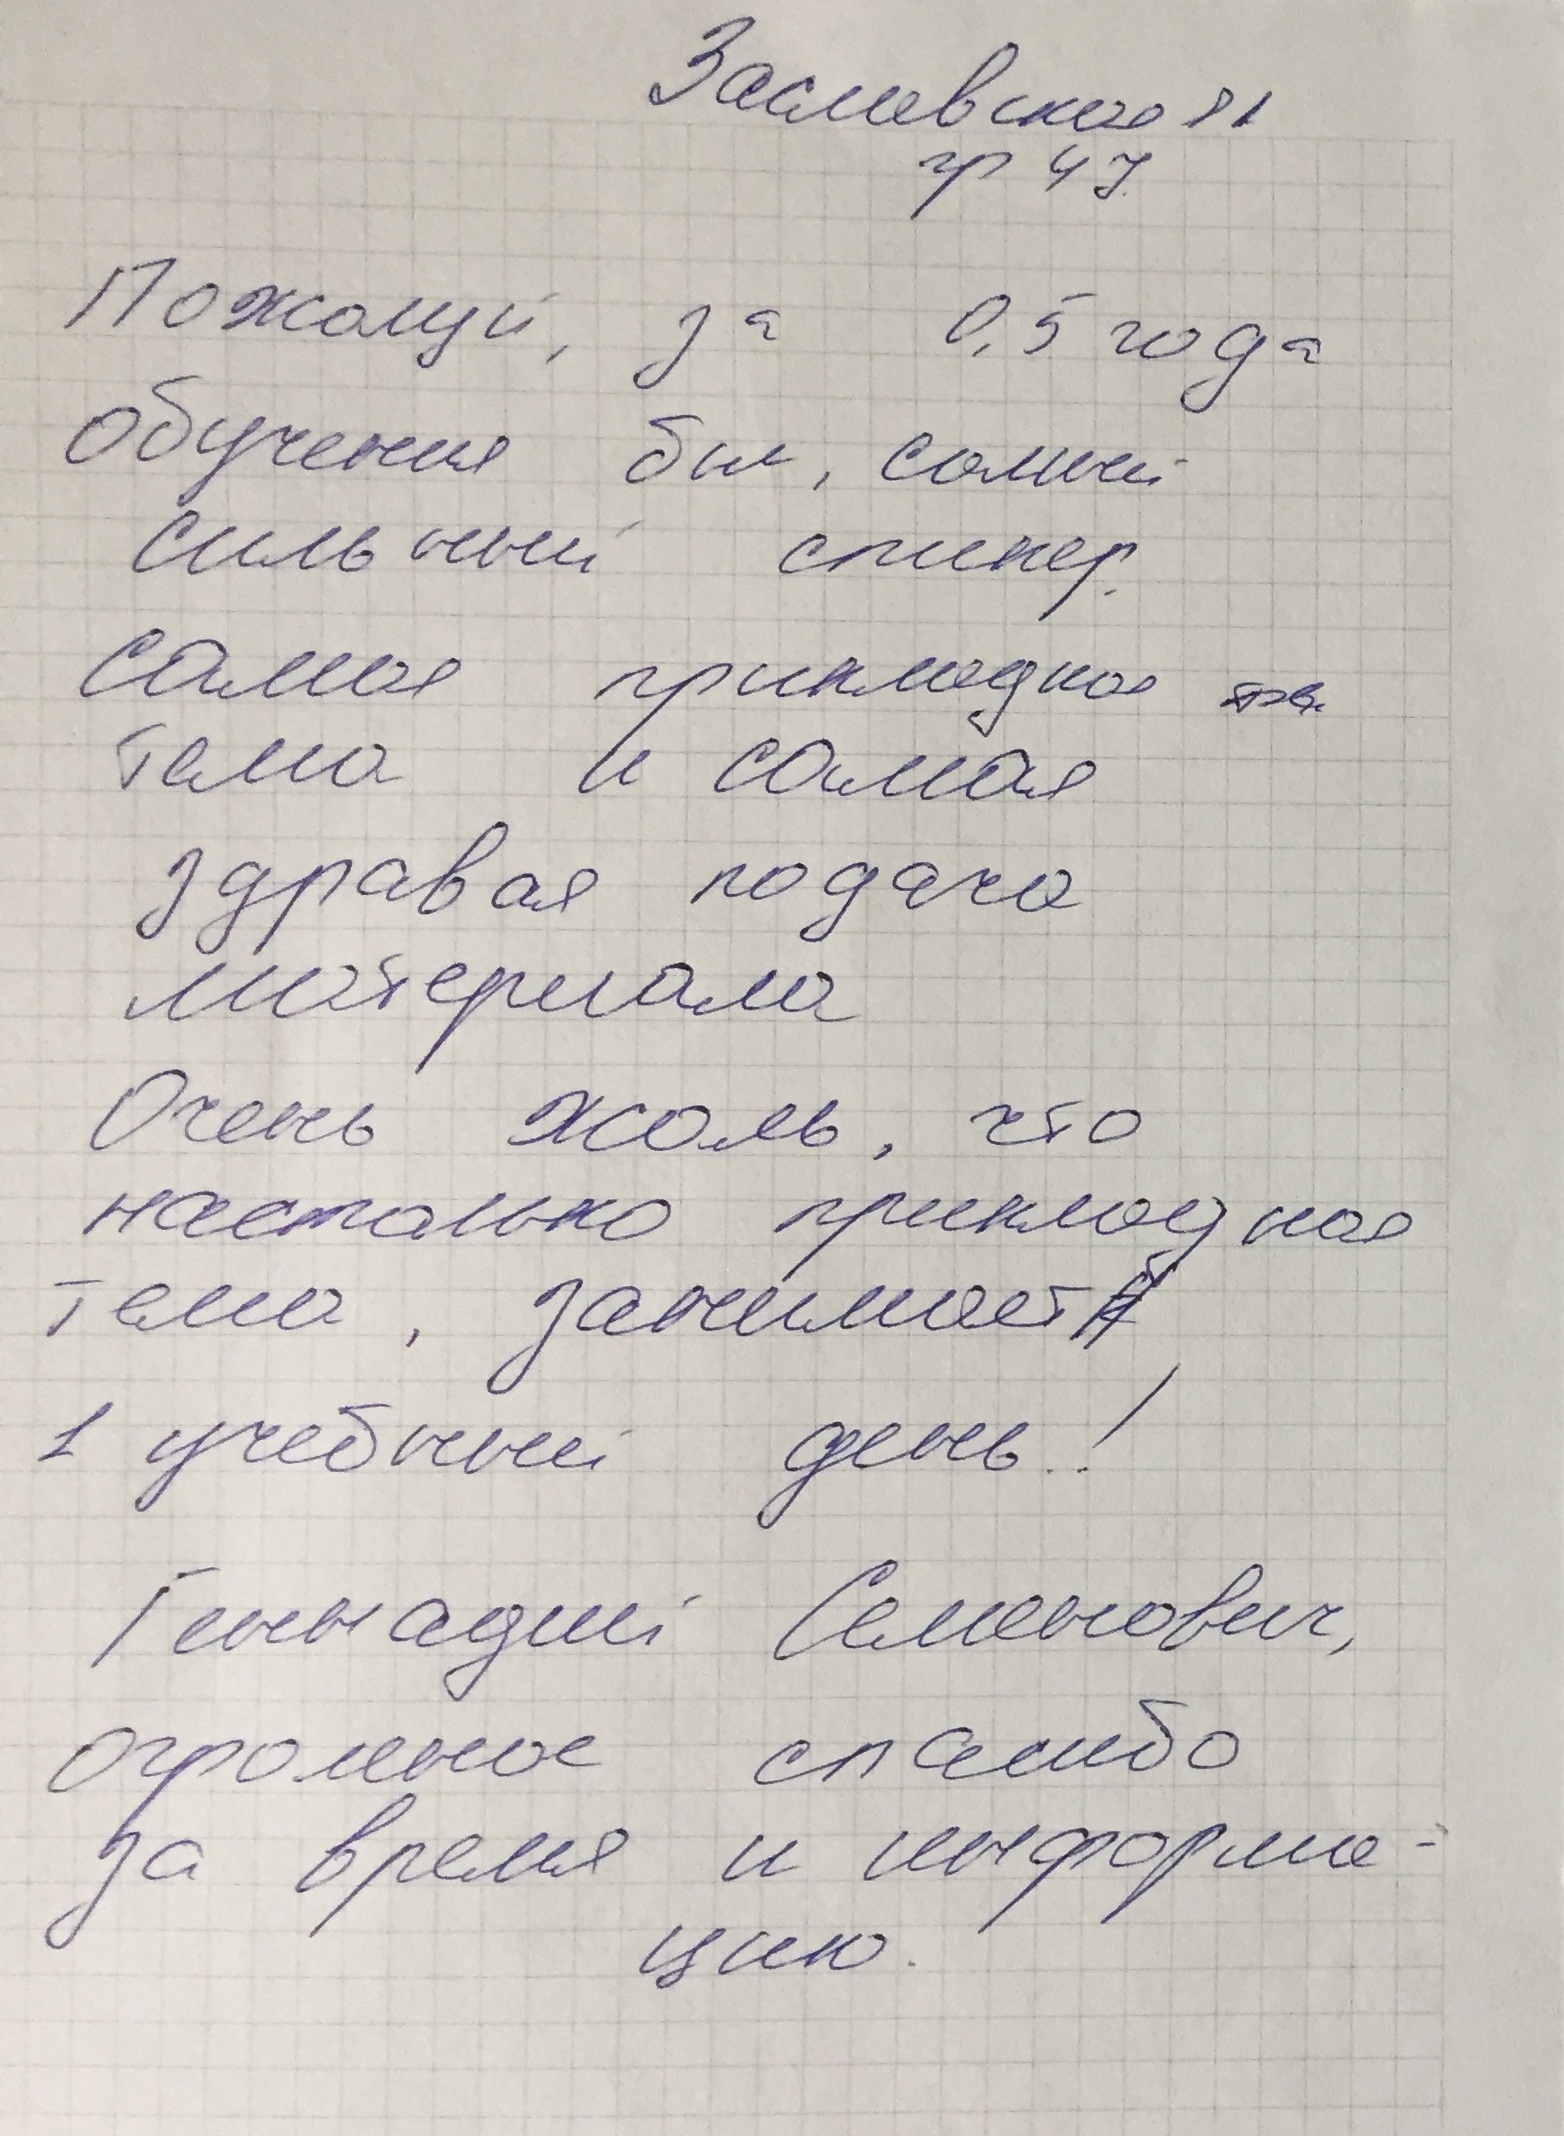 Заславская Я
гр 47
Пожалуй, за 0,5 года
обучения был, самый
сильный спикер.
Самая прикладная
тема и самая
здравая подача
материала
Очень жаль, что
настолько прикладная
тема, занимает
1 учебный день..!
Геннадий Семенович,
огромное спасибо
за время и информа-
цию.